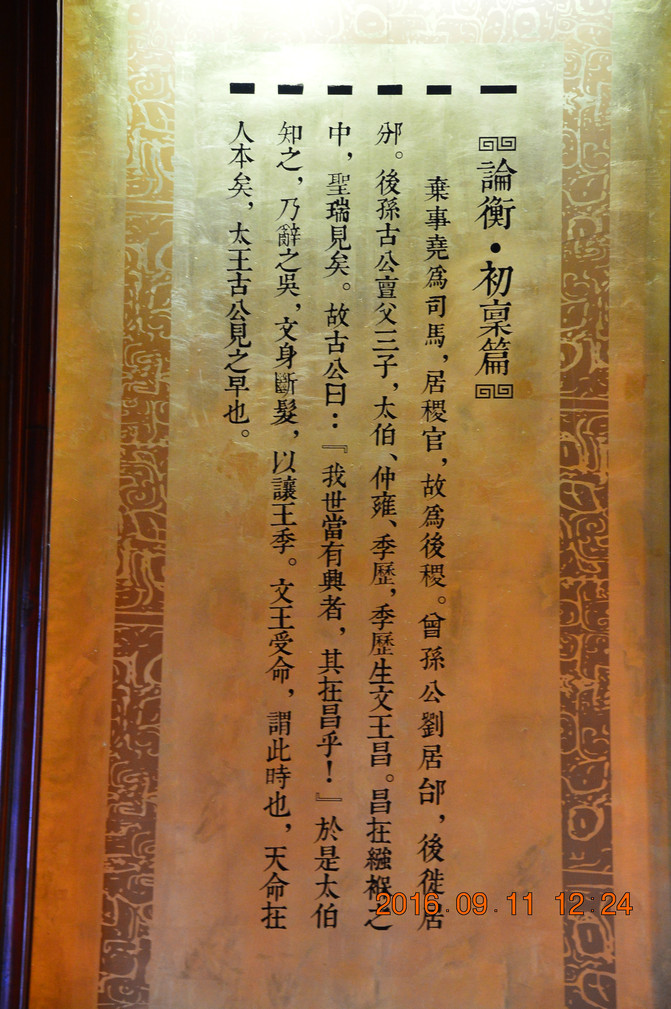 論衡·初稟篇
棄事堯爲司馬，居稷官，故爲後稷。曾孫公劉居邰，後徙居
邠。後孫古公亶父三子，太伯、仲雍、季歷，季歷生文王昌。昌在繈褓之
中，聖瑞見矣。故古公曰：『我世當有興者，其在昌乎！』於是太伯
知之，乃辭之吳，文身斷髮，以讓王季。文王受命，謂此時也，天命在
人本矣，太王古公見之早也。
2016.09.11 12:24